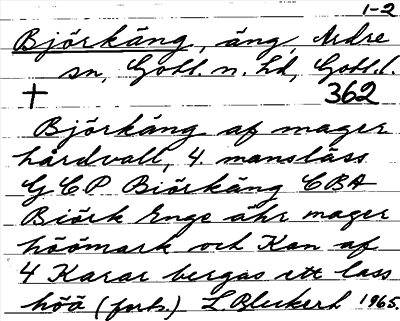 1-2
Björkäng, äng, Ardre
sn, Gotl. n. hd, Gotl. l.
† 362
Björkäng af mager
hårdvall, 4. manslass
G C P Biörkäng CBA
Biörk Enge ähr mager
höömark och Kan af
4 Karar bergas ett lass
höö (forts.) L. Bleckert 1965.